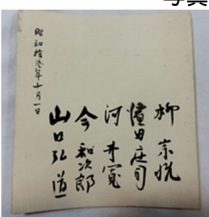 写真
柳宗悦
濱田庄司
河井寛
今和次郎
山口弘道
昭和拾参年十月一日